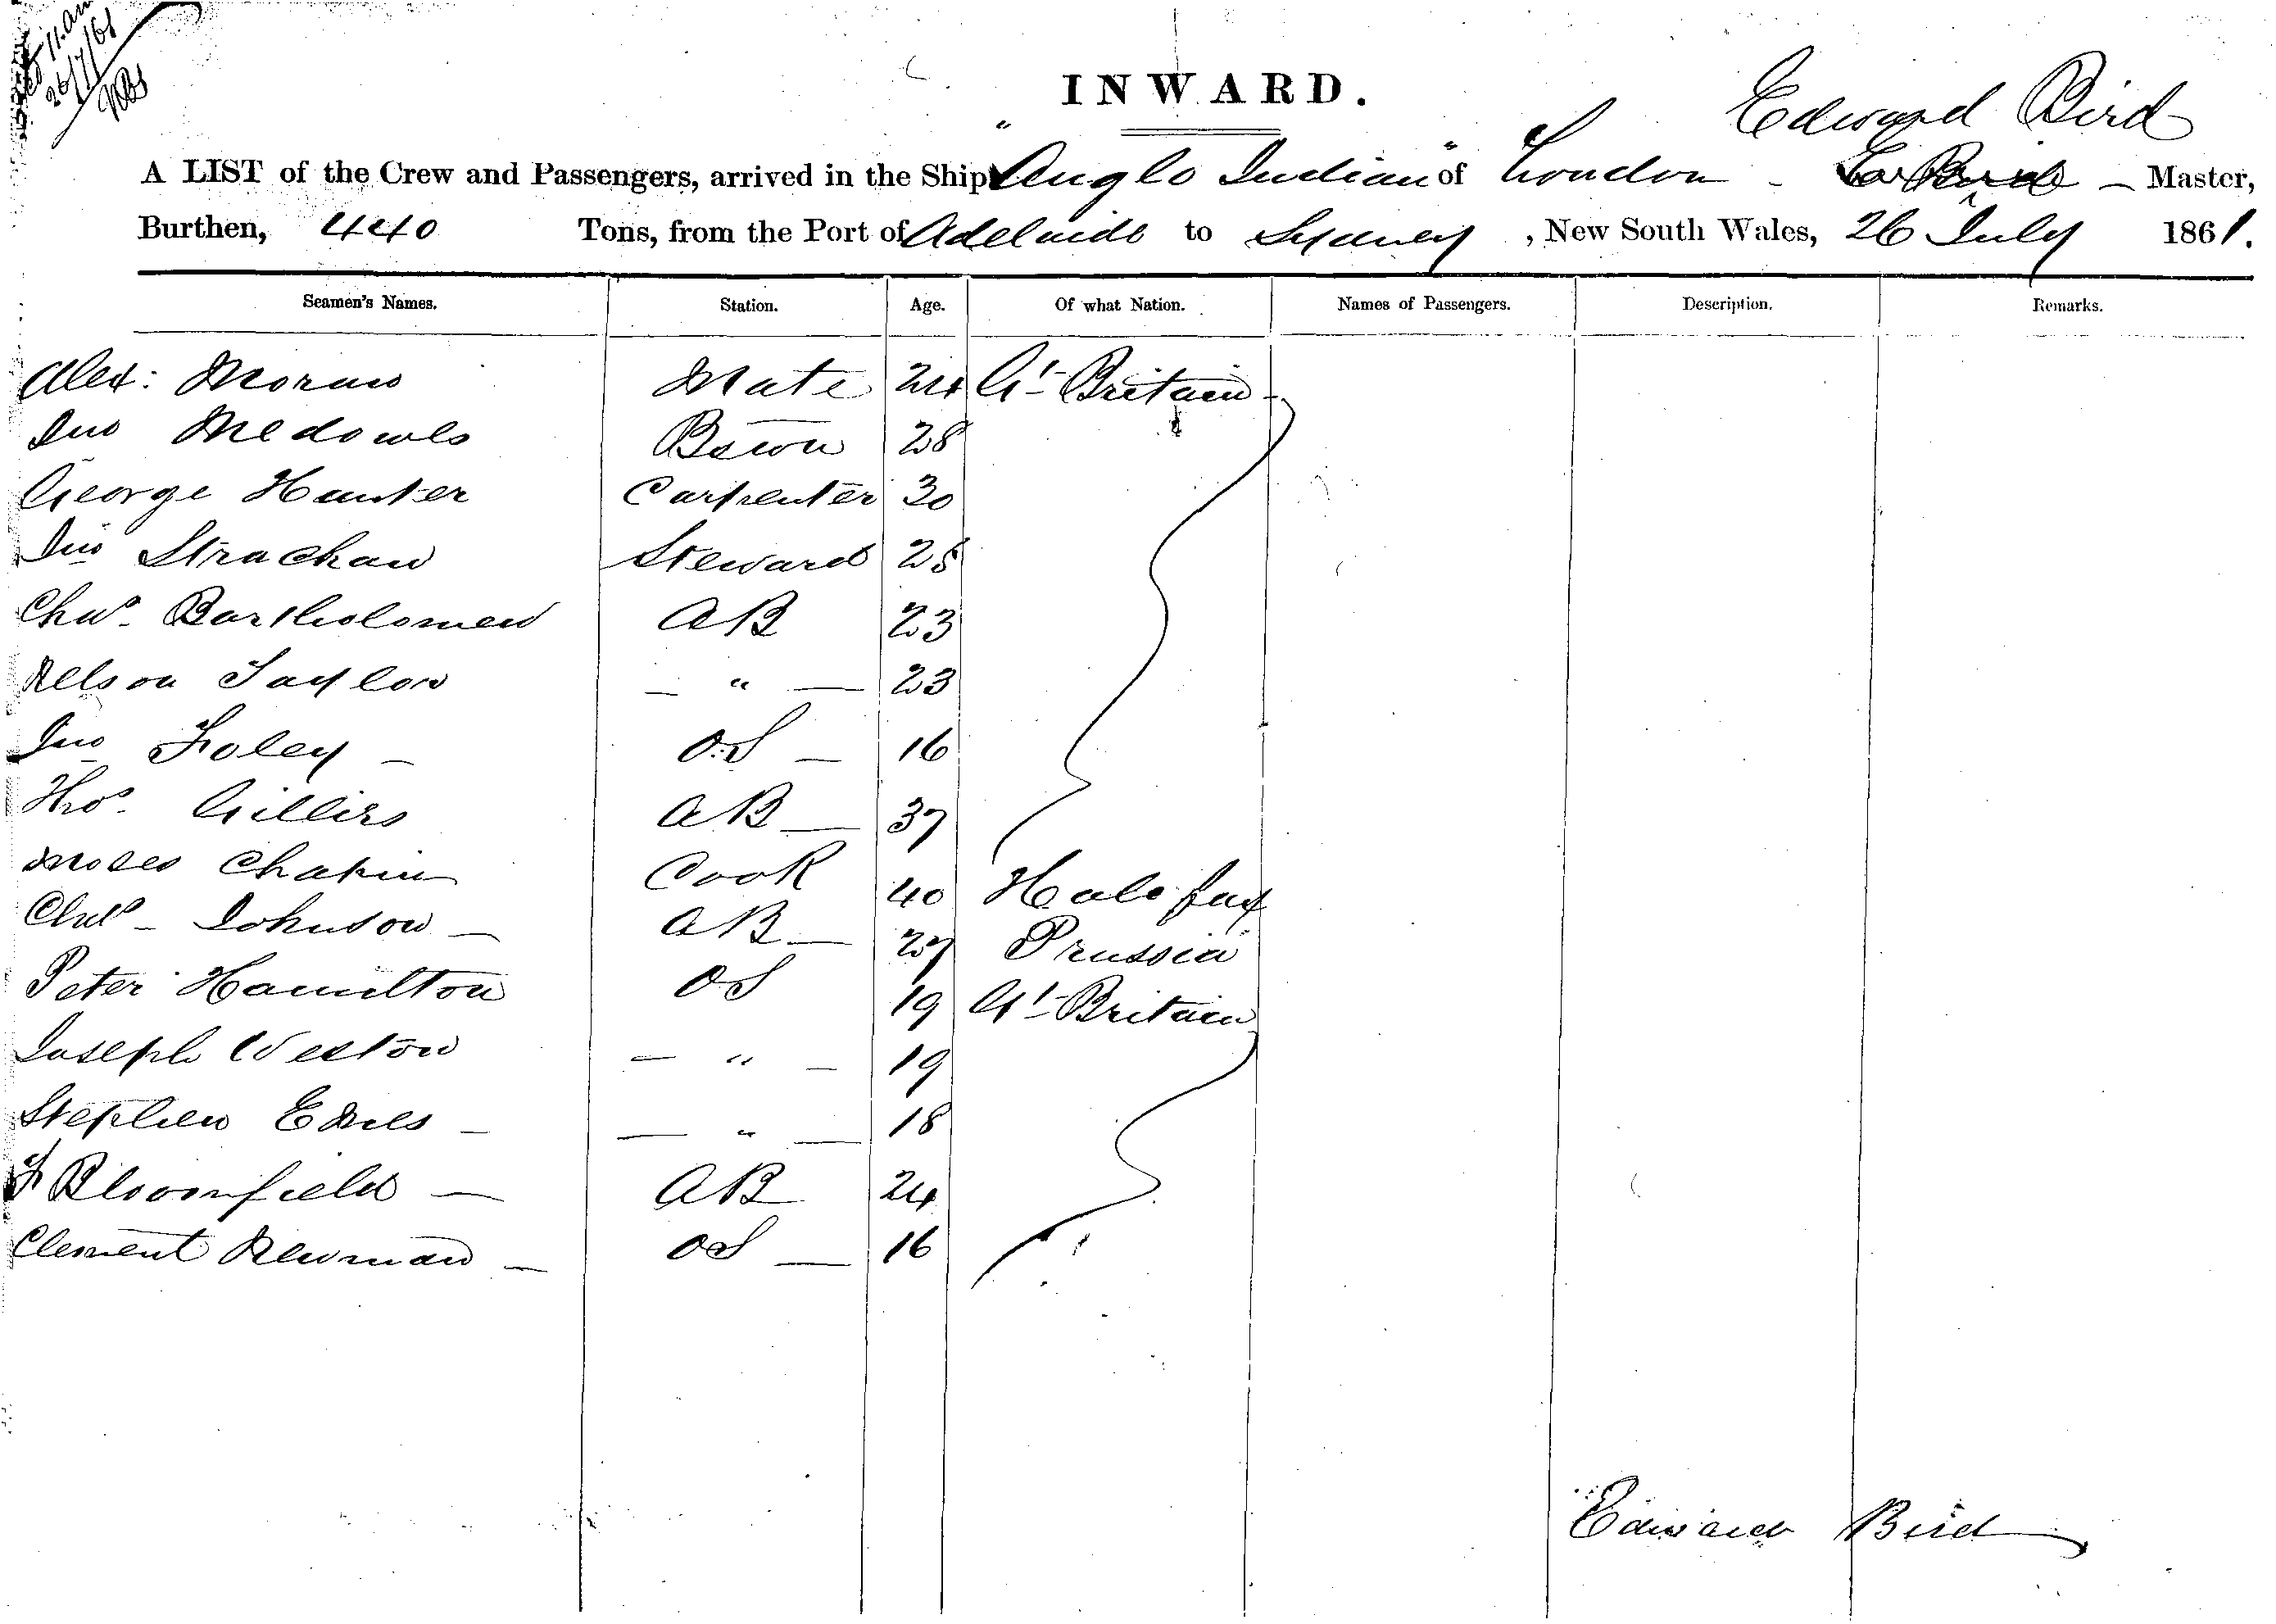 11 am
26/7/61
INWARD.
Edward Bird
A LIST of the Crew and Passengers, arrived in the Ship "Anglo Indian" of London - Bird - Master,
Burthen, 440 Tons, from the Port of Adelaide to Sydney, New South Wales, 26 July 1861.
Seamen's Names. Station. Age. Of what Nation. Names of Passengers. Description. Remarks.
Alex: Moran Mate 24 Gt Britain
Jno Medowes Boswn 28
George Hunter Carpenter 30
Jno Strachan Steward 28
Chas. Bartholomew AB 23
Nelson Taylor — " — 23
Jno Foley — OS — 16
Thos. Gilliss AB — 37
Moses Chapin Cook 40 Halifax
Chas - Johnson — AB — 27 Prussia
Peter Hamilton OS 19 Gt Britain
Joseph Weston — " — 19
Stephen — — " — 18
F Bloomfield — AB 24
Clement Newman — OS — 16
Edward Bird